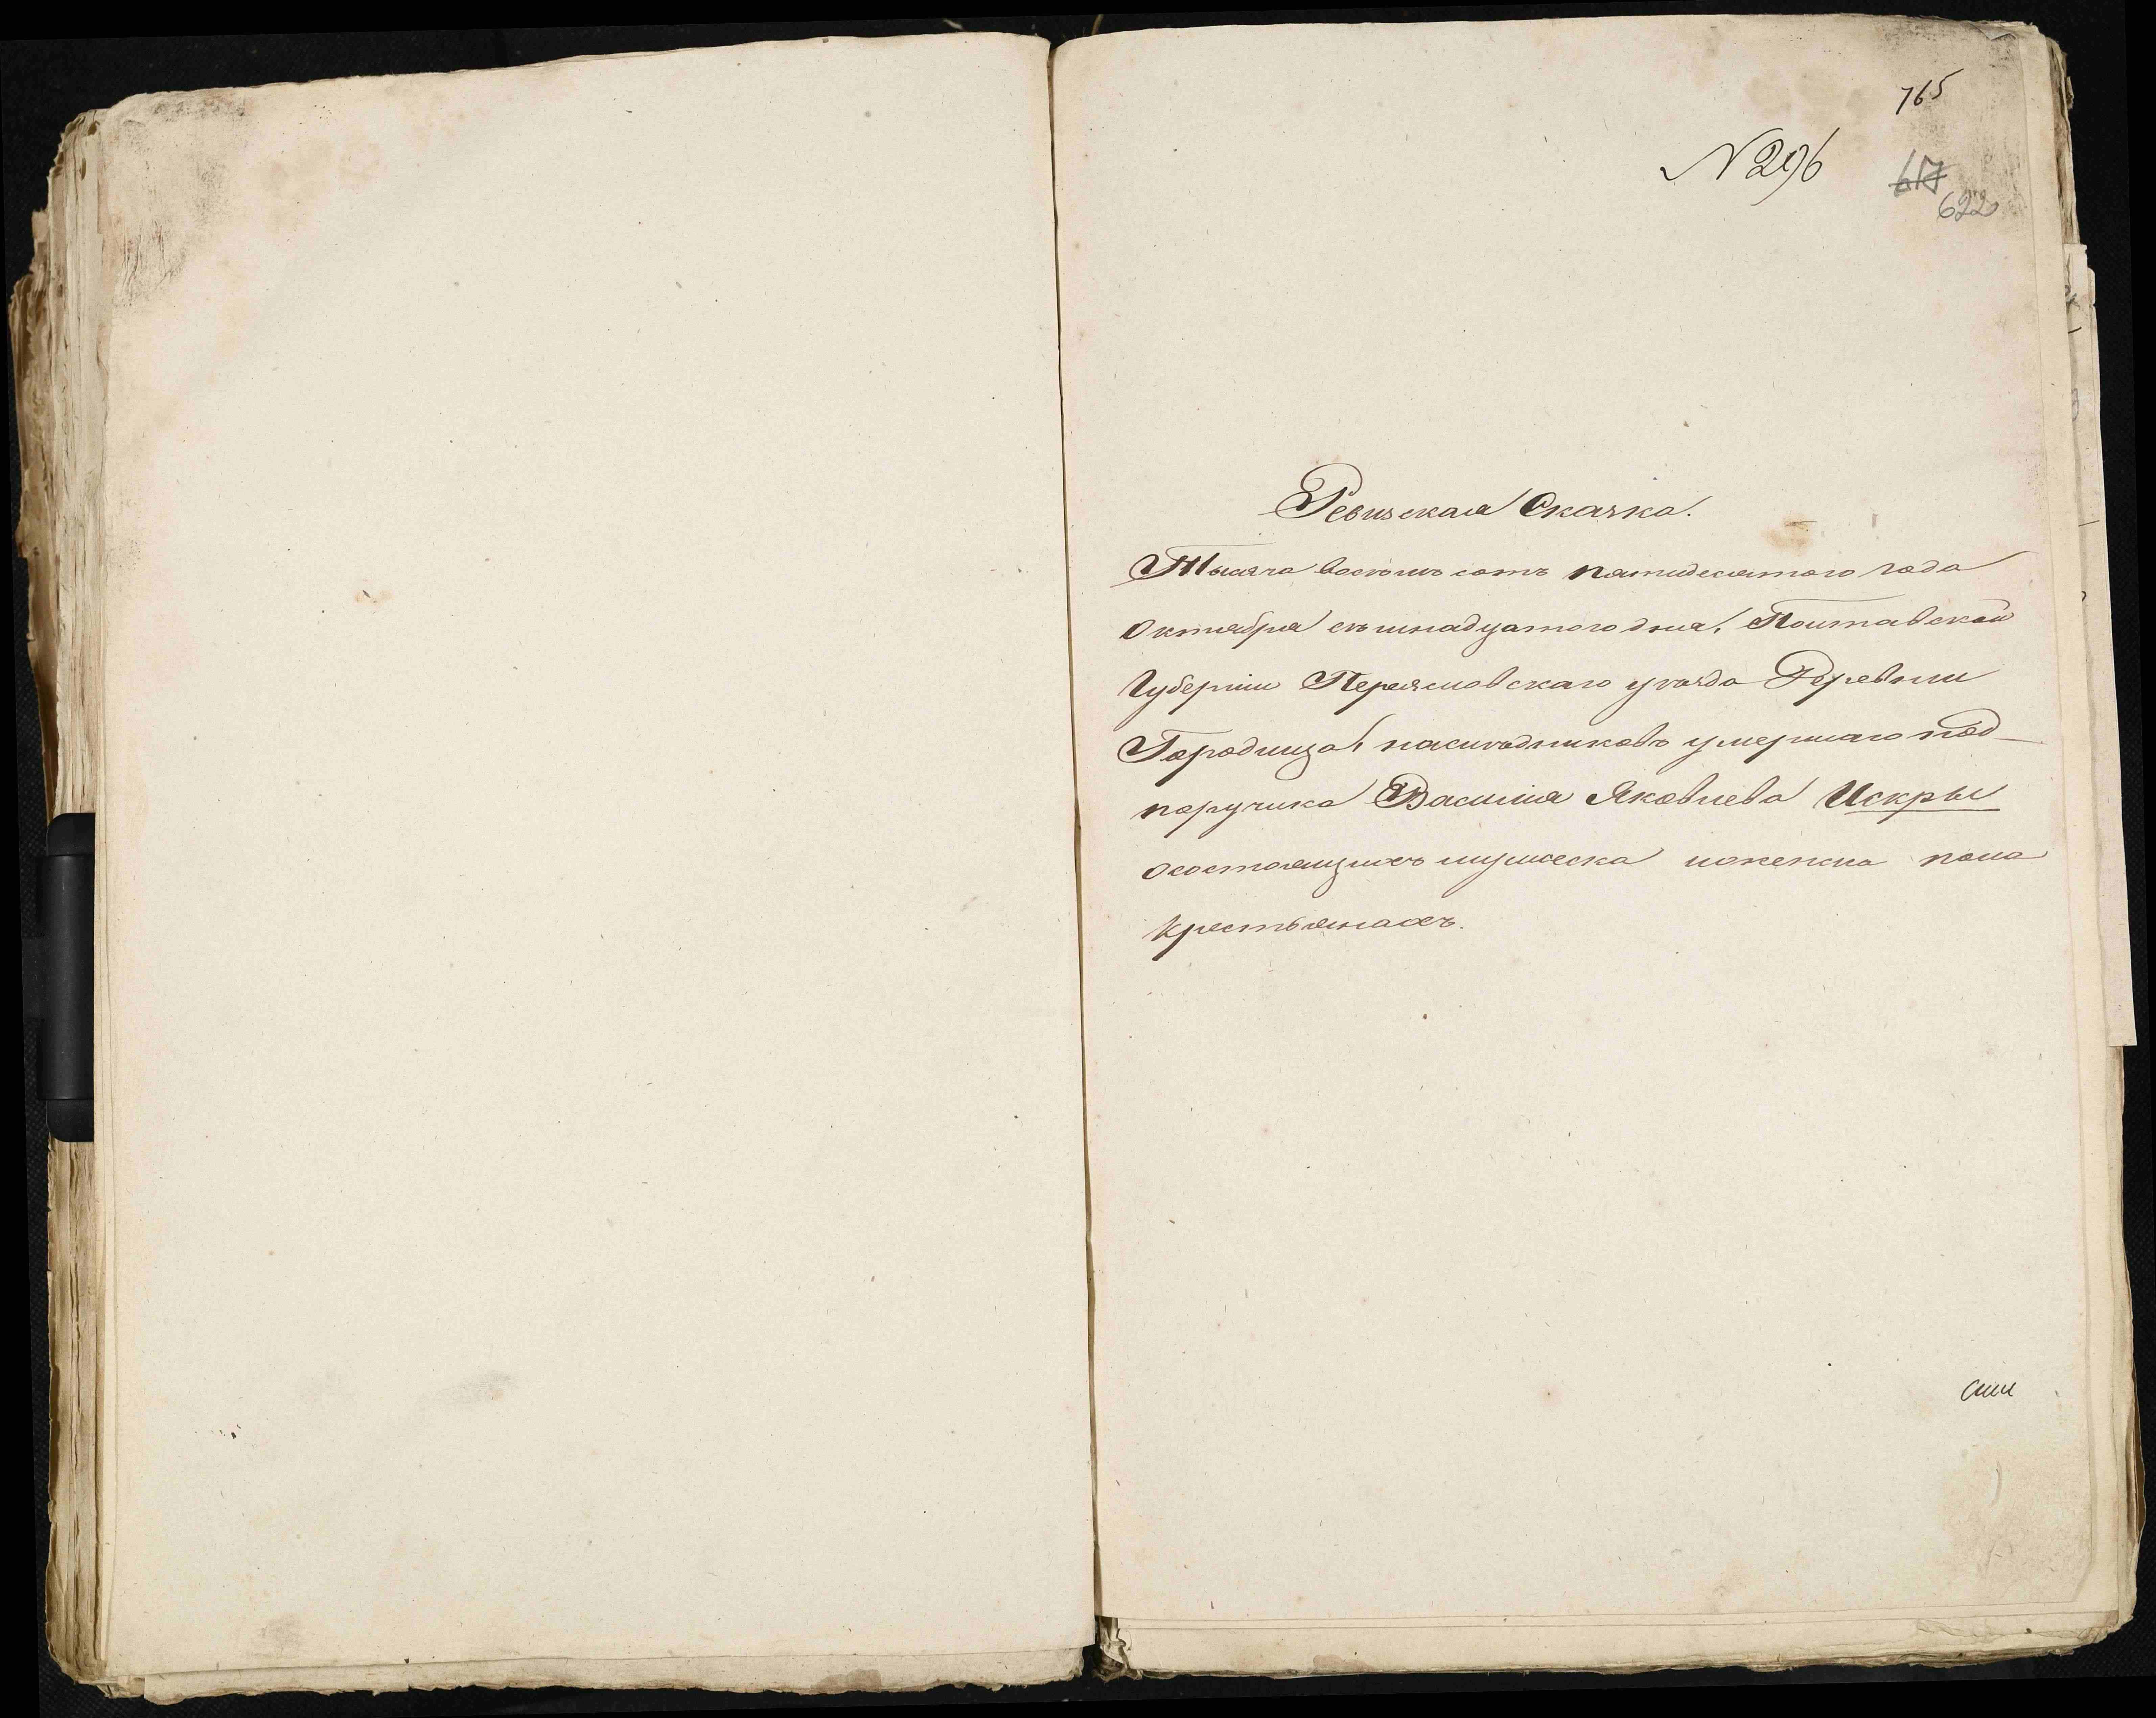 765
N 296
617
622
Ревизская Сказка.
Тысяча восемь сотъ пятидесятого года
Октября семнадцатого дня, Полтавской
Губерніи Переяславскаго уѣзда Деревни
Городища, наслѣдниковъ умершаго под-
поручика Василія Яковлева Искры
осостоящихъ мужеска иженска пола
Крестьянахъ.